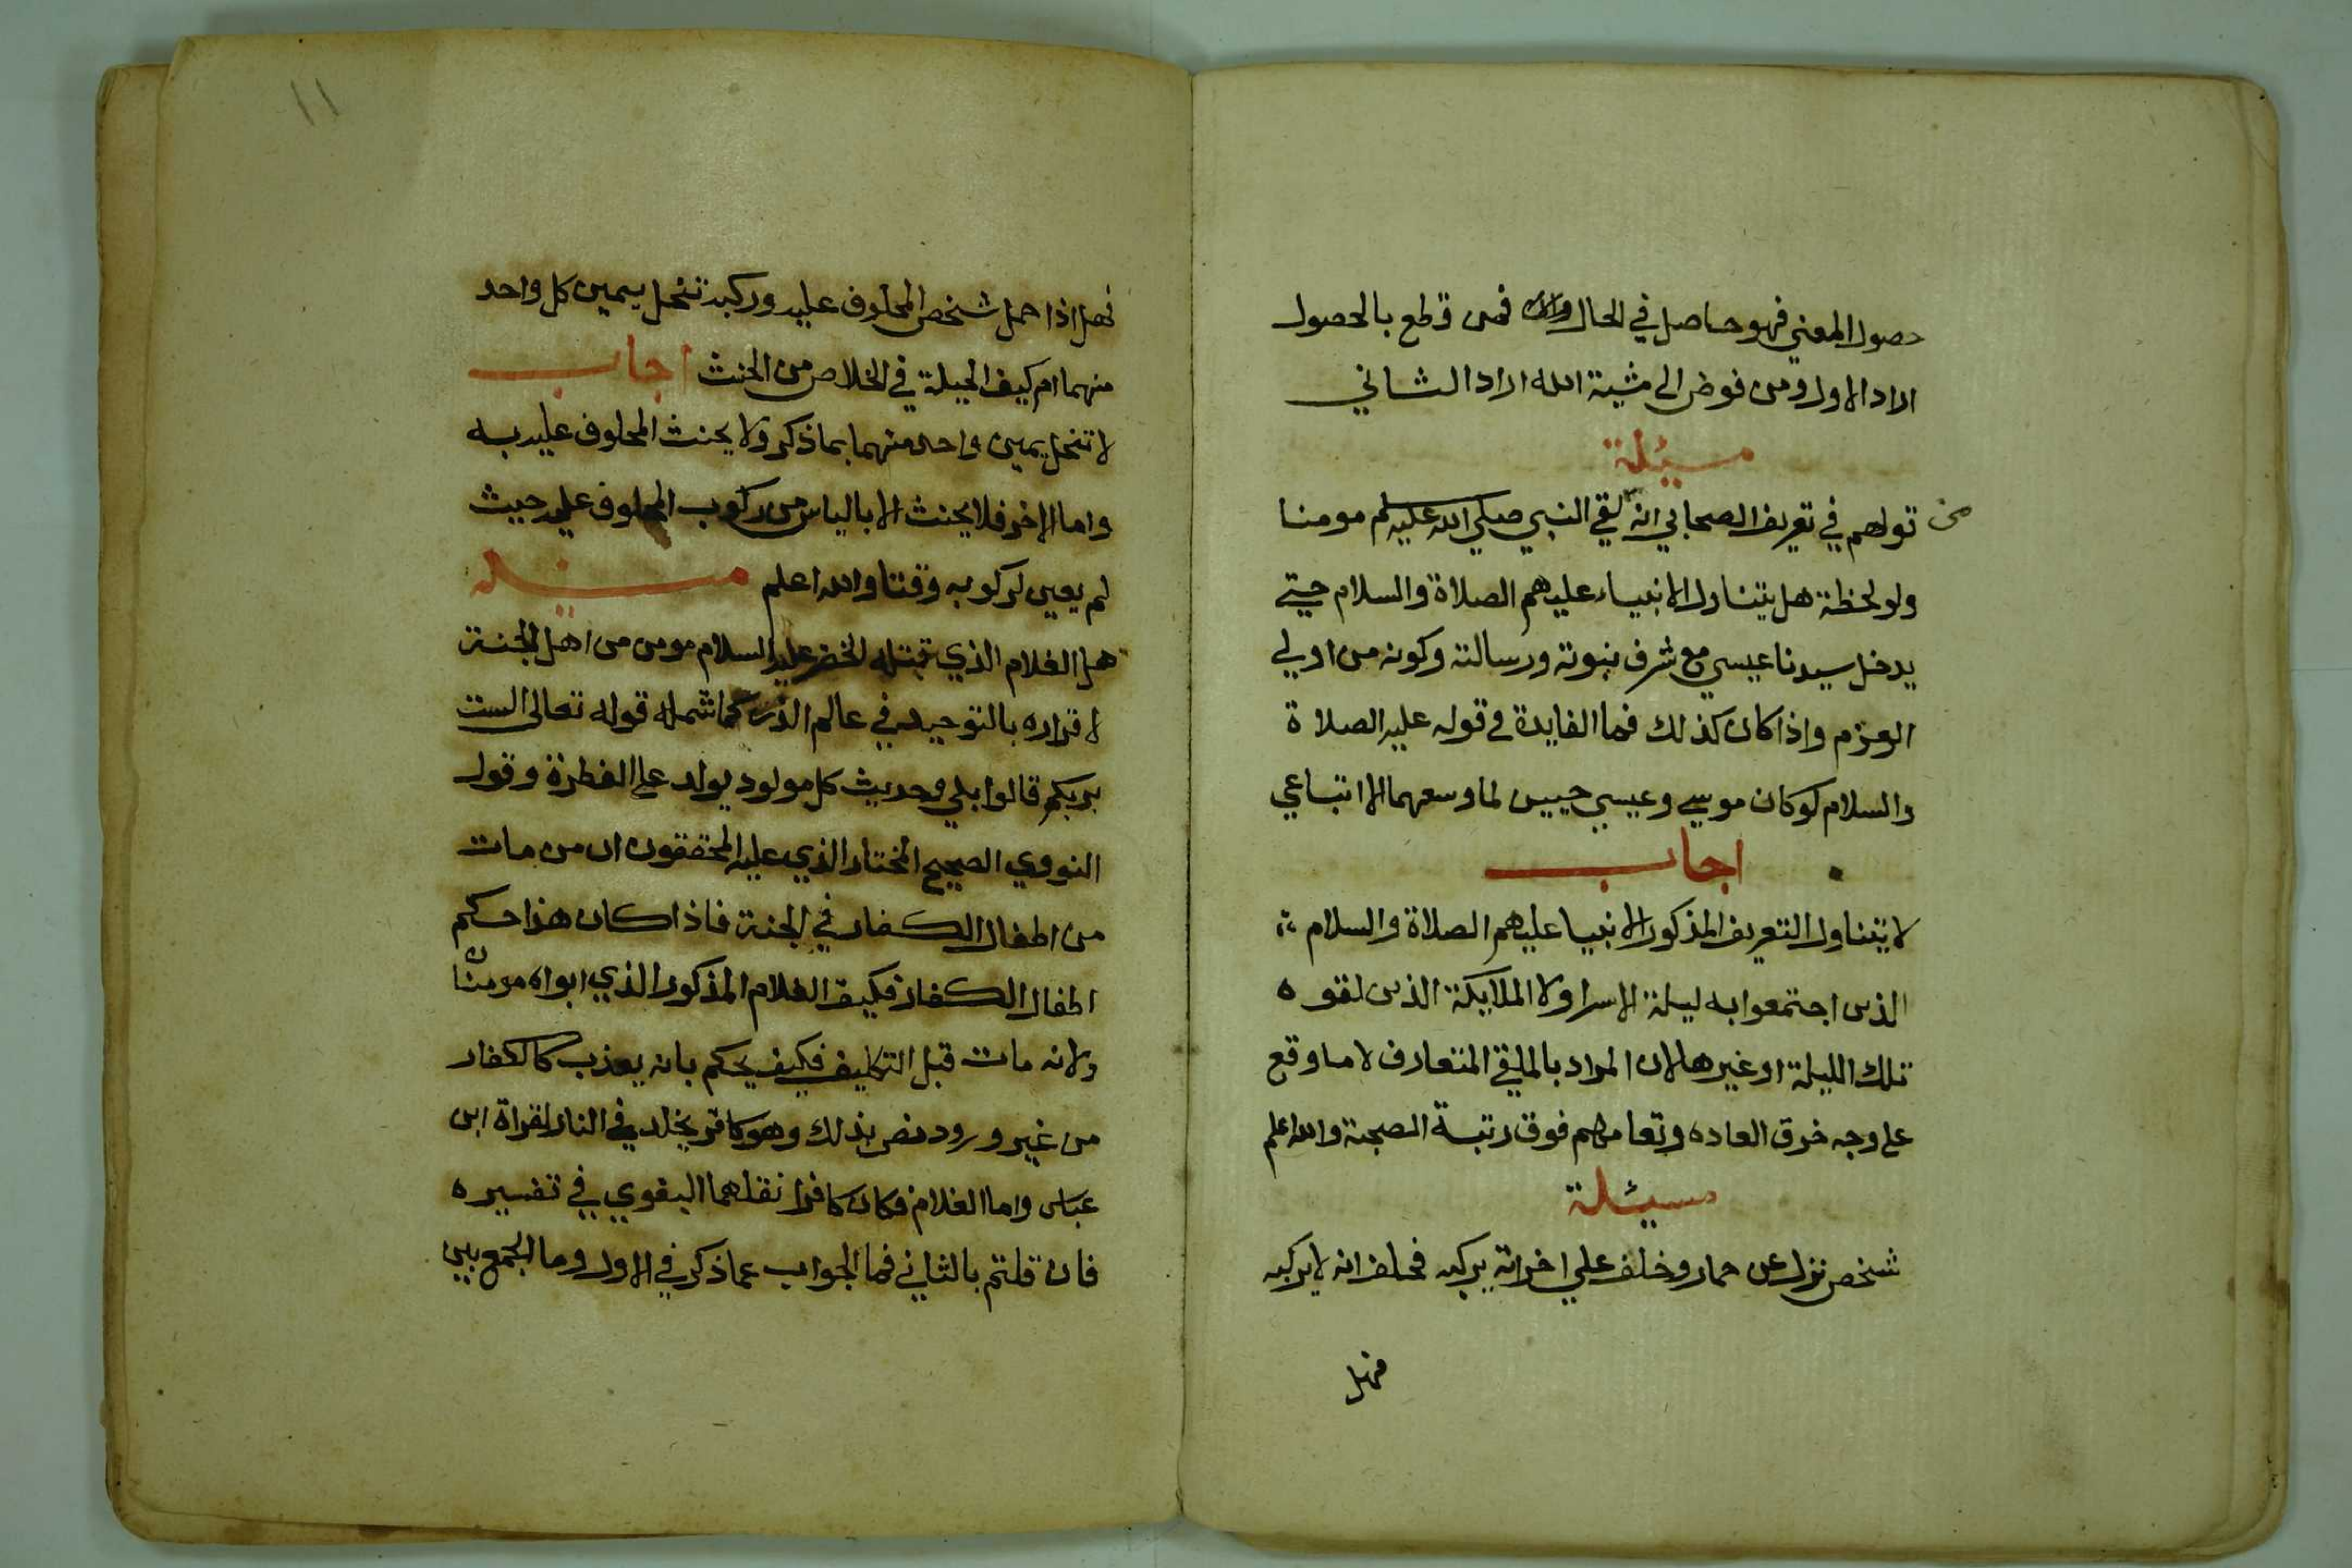 حصول المعني فهو حاصل في الحال فمن قطع بالحصول
اراد الاول ومن فوض الى مشية الله اراد الثاني
مسئلة
قولهم في تعريف الصحابي انه من لقي النبي صلي الله عليه وسلم مومنا
ولو لحظة هل يتناول الانبياء عليهم الصلاة والسلام حتي
يدخل سيدنا عيسي مع شرف نبوته ورسالته وكونه من اولي
العزم واذا كان كذلك فما الفايدة في قوله عليه الصلاة
والسلام لو كان موسي وعيسي حيين لما وسعهما الا اتباعي
اجاب
لا يتناول التعريف المذكور الانبيا عليهم الصلاة والسلام
الذين اجتمعوا به ليلة الاسرا ولا الملايكة الذين لقوه
تلك الليلة او غيرها لان المراد باللقي المتعارف لا ما وقع
علي وجه خرق العاده ومقامهم فوق رتبة الصحبة والله اعلم
مسيئلة
شخص نزل عن حمار وحلف علي اخر انه يركبه فحلف انه لا يركبه
فهل
١١
فهل اذا حمل شخص المحلوف عليه وركبه تنحل يمين كل واحد
منهما ام كيف الحيلة في الخلاص من الحنث اجاب
لا تنحل يمين واحد منهما بما ذكر ولا يحنث المحلوف عليه به
واما الاخر فلا يحنث الا بالياس من ركوب المحلوف عليه حيث
لم يعين لركوبه وقتا والله اعلم مسئله
هل الغلام الذي قتله الخضر عليه السلام مومن من اهل الجنة
لاقراره بالتوحيد في عالم الذر كما شمله قوله تعالى الست
بربكم قالوا بلي وحديث كل مولود يولد علي الفطرة وقول
النووي الصحيح المختار الذي عليه المحققون ان من مات
من اطفال الكفار في الجنة فاذا كان هذا حكم
اطفال الكفار فكيف الغلام المذكور الذي ابواه مومنان
ولانه مات قبل التكليف فكيف يحكم بانه يعذب كالكفار
من غير ورود نص بذلك وهو كافر يخلد في النار لقراة ابن
عباس واما الغلام فكان كافرا نقلهما البغوي في تفسيره
فان قلتم بالثاني فما الجواب عما ذكر في الاول وما الجمع بين